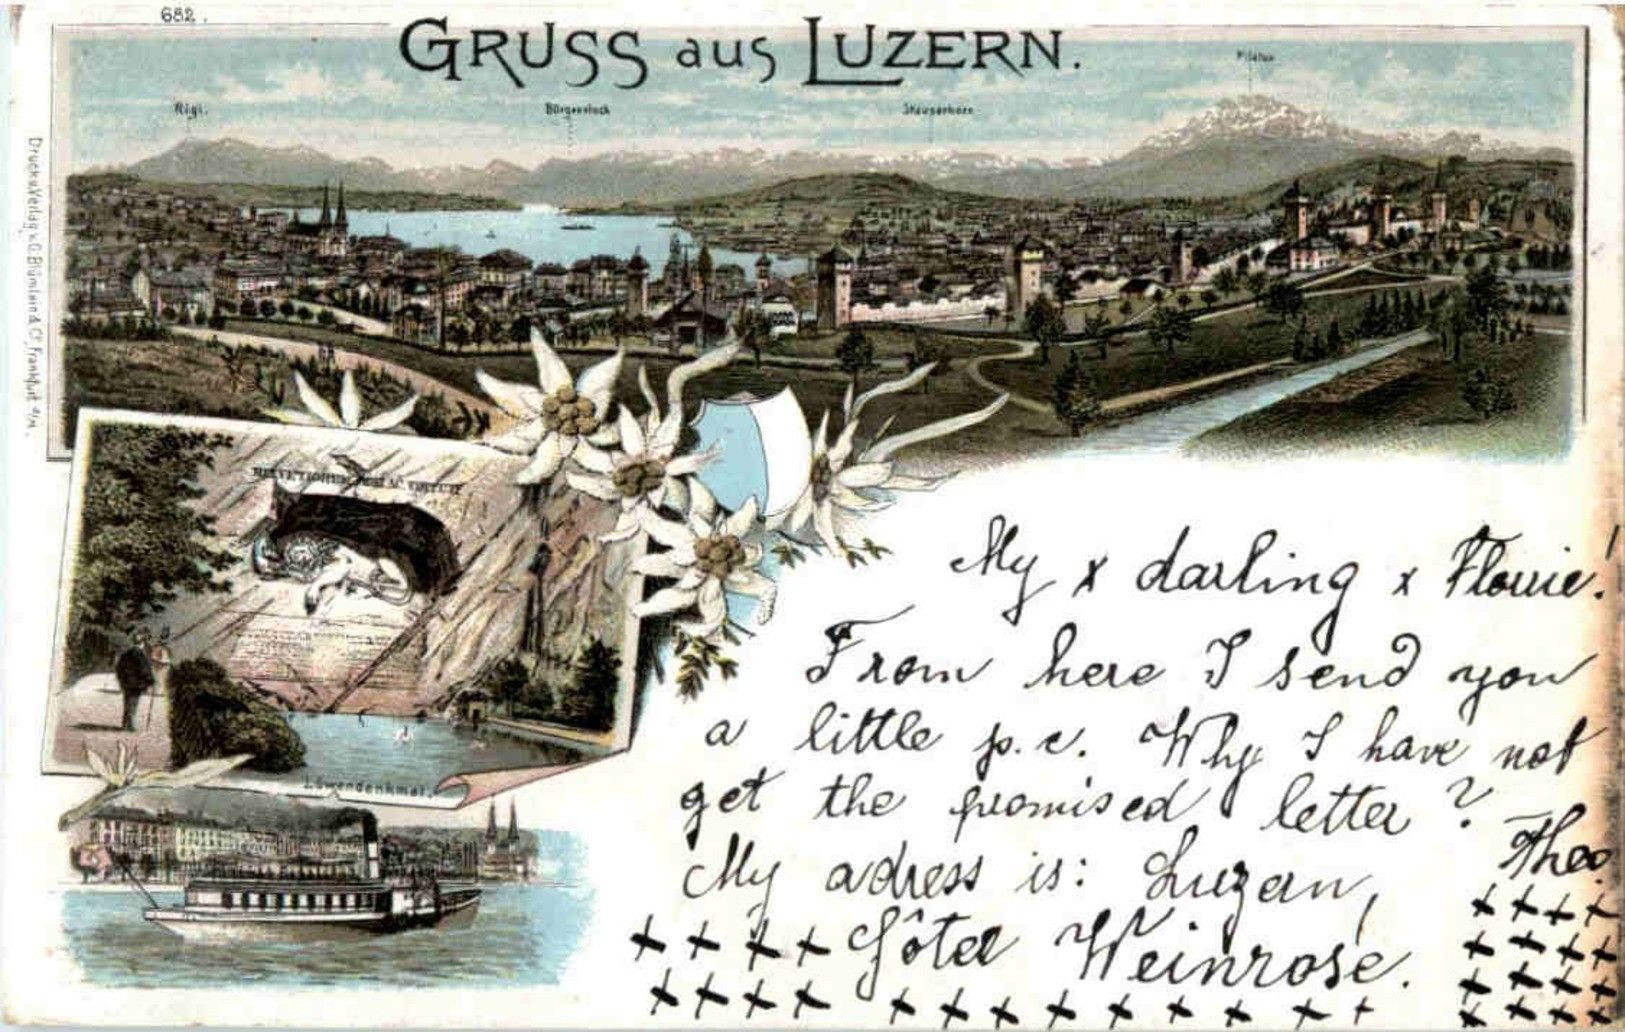 682.
GRUSS aus LUZERN.
Pilatus
Rigi.
Bürgenstock
Stanserhorn
Druck u. Verlag v. G. Blümlein & Co. Frankfurt a/M.
HELVETIORUM FIDEI AC VIRTUTI
Löwendenkmal.
My x darling x Florrie!
From here I send you
a little p.c. Why I have not
get the promised letter?
My adress is: Luzern,
Hôtel Weinrose.
Theo.